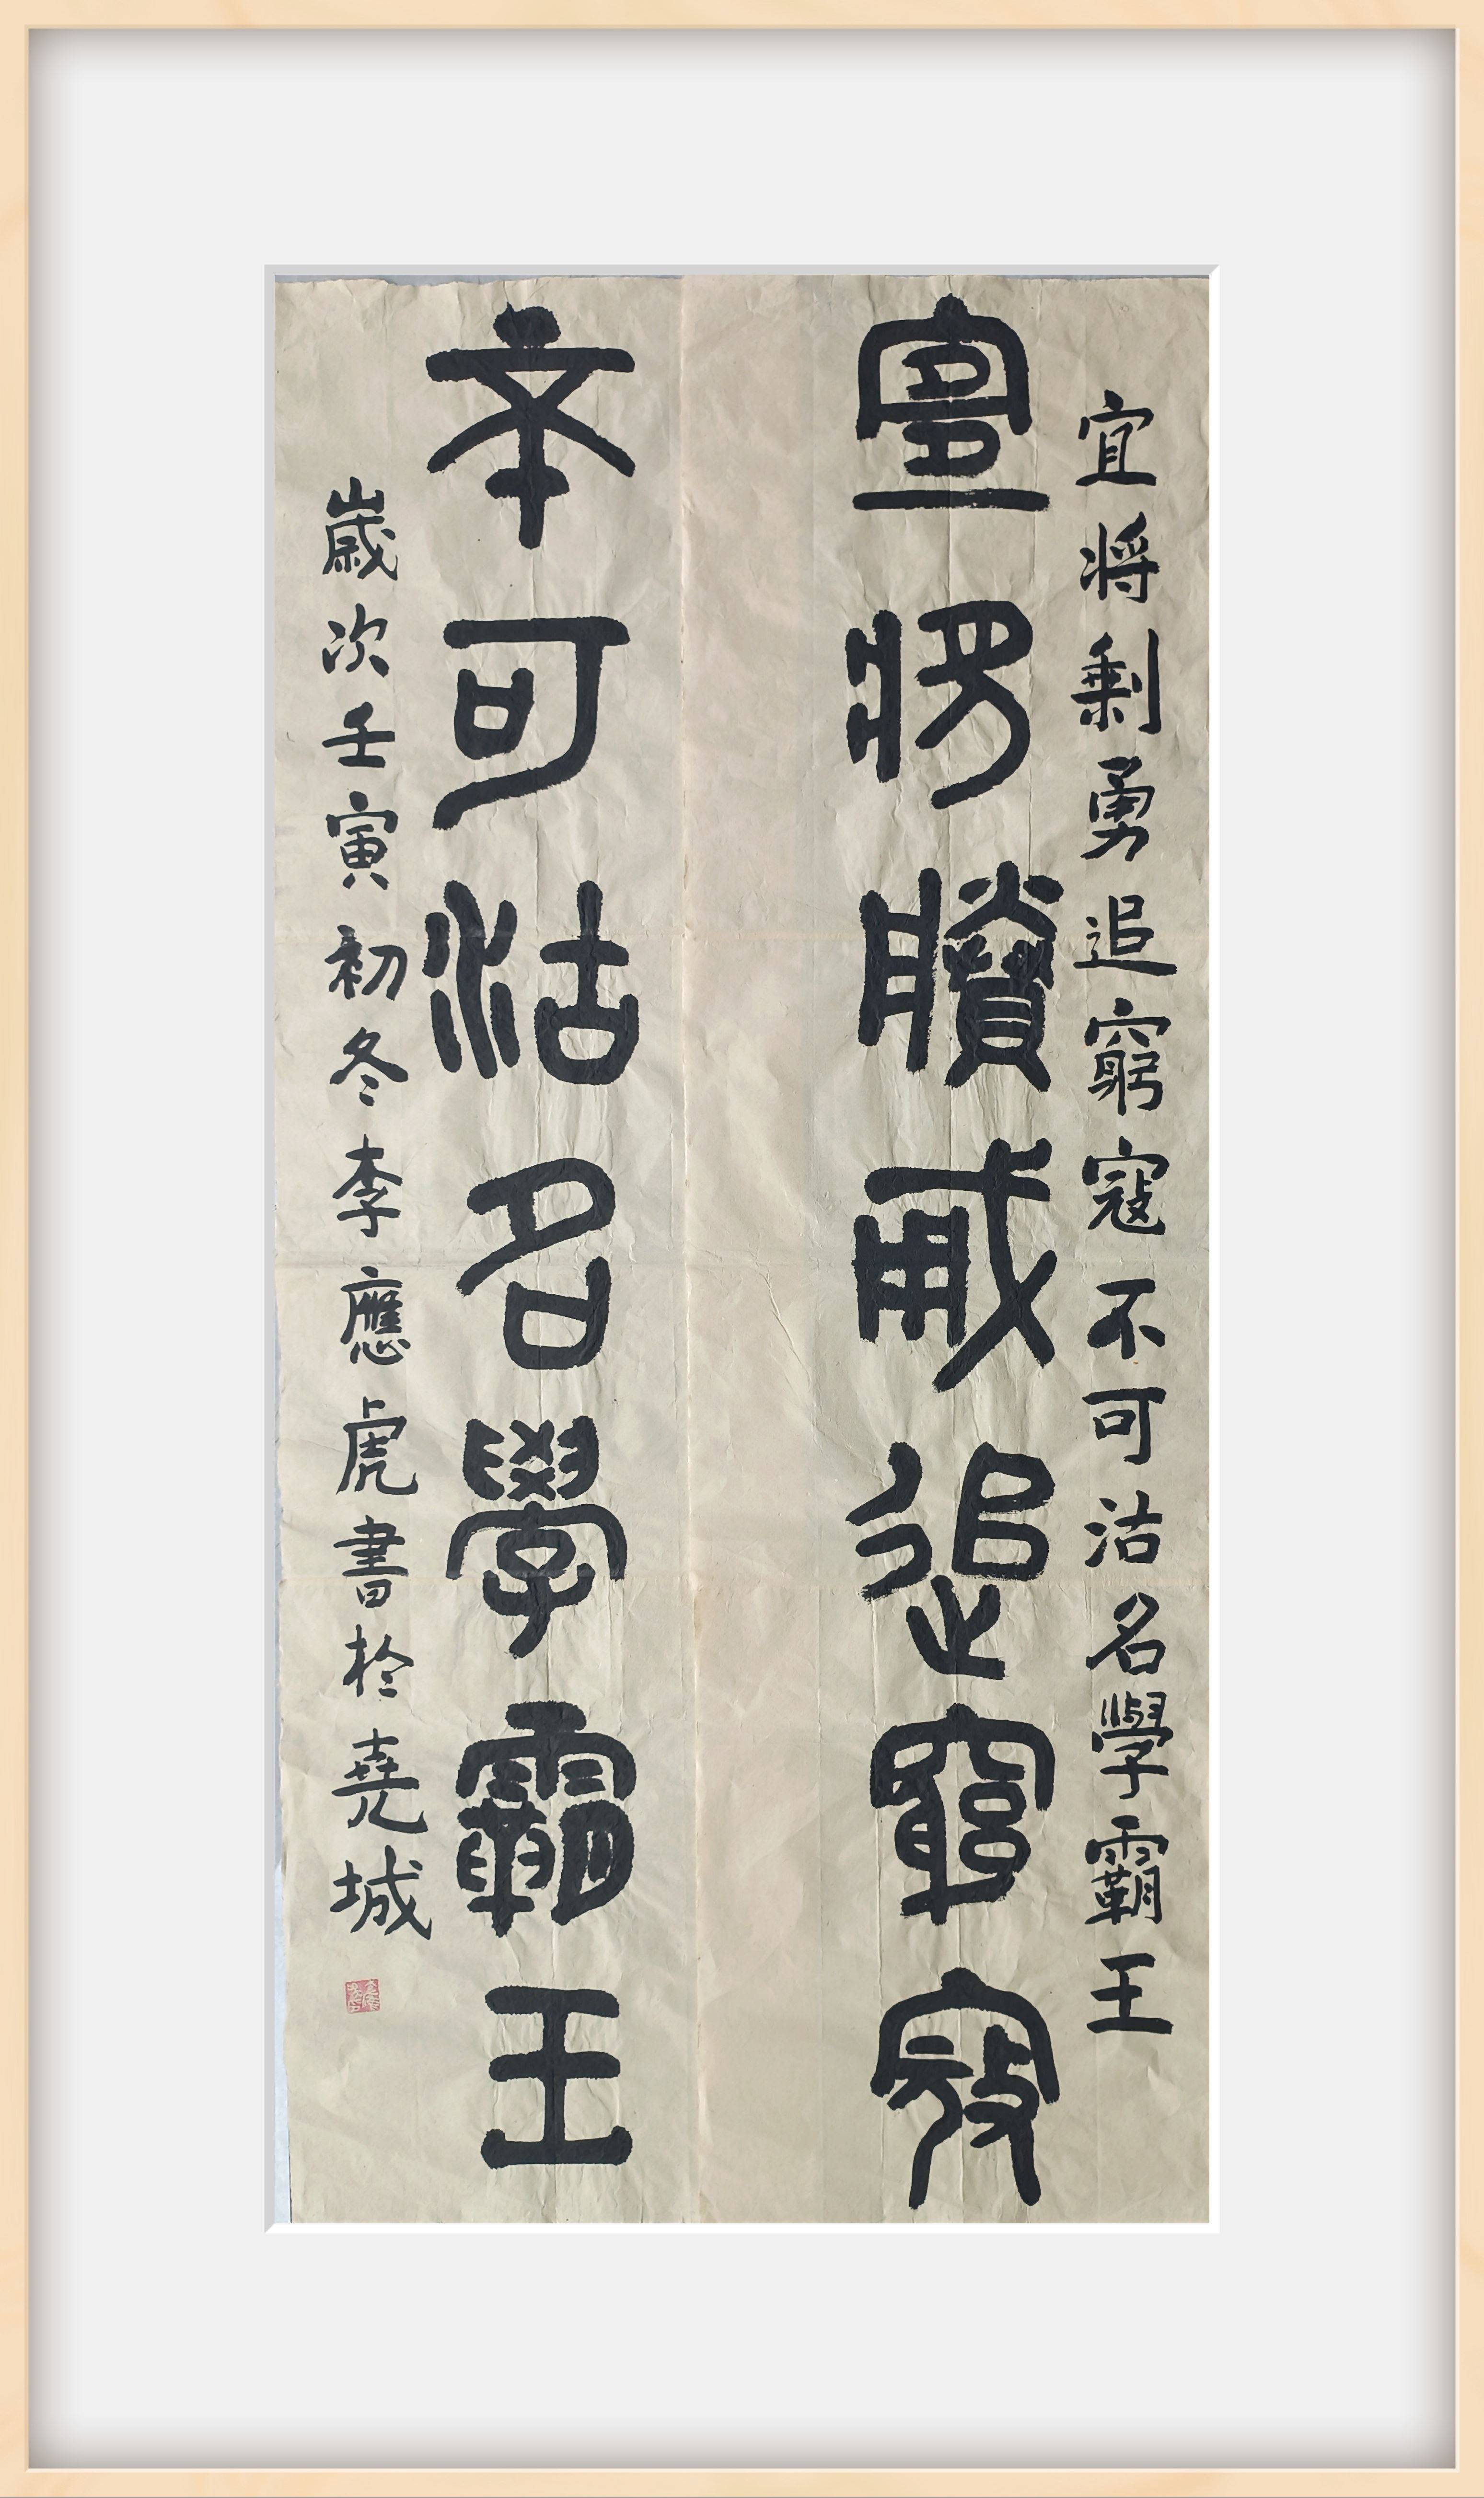 宜將剩勇追窮寇不可沽名學霸王
宜將賸勇追窮寇
不可沽名學霸王
歲次壬寅初冬李應虎書於堯城